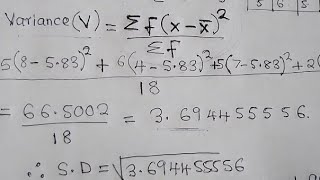 5 6 5
Variance(V) = Σf(x-x̄)²
Σf
5(8-5.83)² + 6(4-5.83)² + 5(7-5.83)² + 2(
18
= 66.5002 = 3.694455556.
18
∴ S.D = √3.6944555556